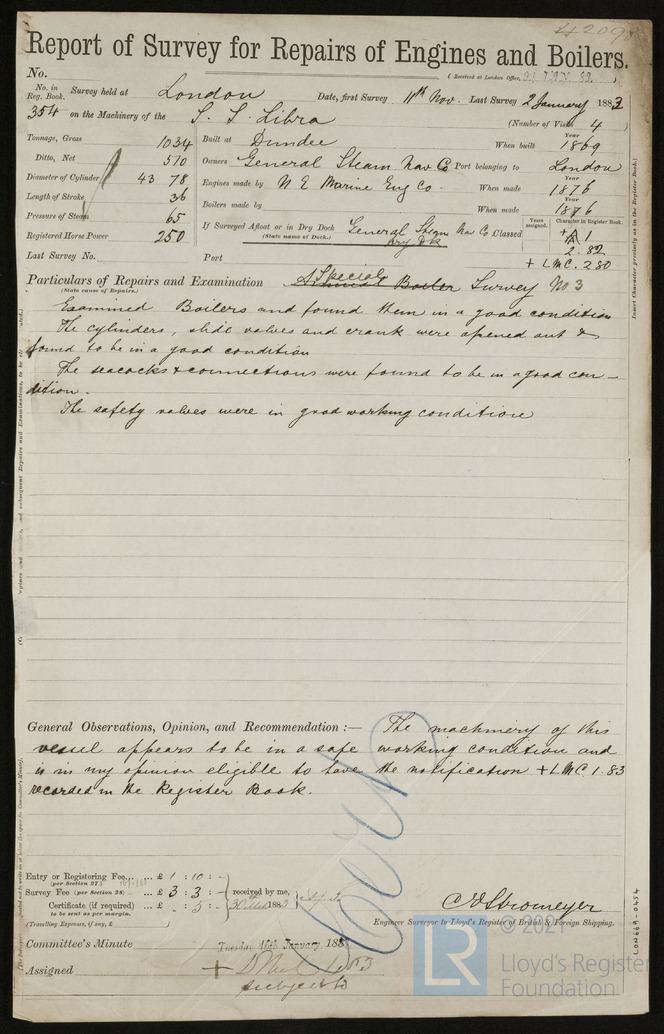 4209
Report of Survey for Repairs of Engines and Boilers.
No.
(Received at London Office,
No. in Reg. Book. Survey held at London Date, first Survey 11th Nov. Last Survey 2 January 1883
354 on the Machinery of the S. S. Libra
(Number of Visits 4)
Tonnage, Gross 1034 Built at Dundee When built Year 1869
Ditto, Net 510 Owners General Steam Nav Co Port belonging to London
Diameter of Cylinder 43 78 Engines made by N E Marine Eng Co. When made Year 1876
Length of Stroke 36 Boilers made by When made Year 1876
Pressure of Steam 65
Registered Horse Power 250
If Surveyed Afloat or in Dry Dock General Steam Nav Co Classed
(State name of Dock.) Dry Dk
Years assigned. Character in Register Book.
+ A 1
2. 82
Last Survey No. Port + LMC. 2 80
Particulars of Repairs and Examination Special Annual Boiler Survey No 3
(State cause of Repairs.)
Examined Boilers and found them in a good condition
The cylinders, slide valves and crank were opened out &
found to be in a good condition
The seacocks & connections were found to be in a good con-
dition.
The safety valves were in good working condition
General Observations, Opinion, and Recommendation:— The machinery of this
vessel appears to be in a safe working condition and
is in my opinion eligible to have the notification + LMC 1.83
recorded in the Register Book.
Entry or Registering Fee... ... £ 1 : 10 : -
(per Section 27.)
Survey Fee (per Section 28) ... £ 3 : 3 : - received by me,
Certificate (if required) ... £ - : 5 : -
to be sent as per margin.
(Travelling Expenses, if any, £ )
C E Stromeyer
Engineer Surveyor to Lloyd's Register of British & Foreign Shipping.
Committee's Minute Tuesday 16th January 188
Assigned +
subject to
Insert Character precisely as in the Register Book.)
LON669-0454
© 2021
LR
Lloyd's Register
Foundation